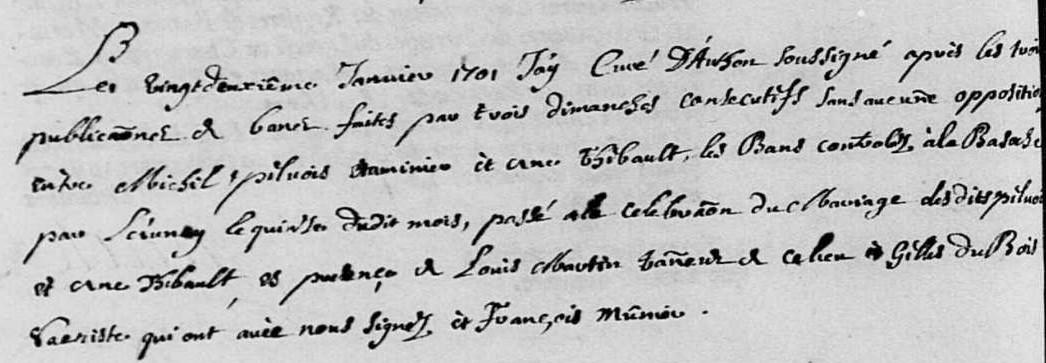 Les vingt deuxiême Janvier 1701 Jay Curé D'Authon soussigné après les troi
publicaõnes de bans faites par trois dimanches consecutifs sans aucune oppositio
entre Michel pilvois Etaminier et Anne Thibault, les Bans contrôlez à la Basoche
par le quinze dudit mois, passé a la celebraõn du Mariage desdits pilvoi
et Anne Thibault es presence de Louis Martin tanneur de ce lieu et Gilles du Bois
Sacriste qui ont avec nous signez et François Munier.